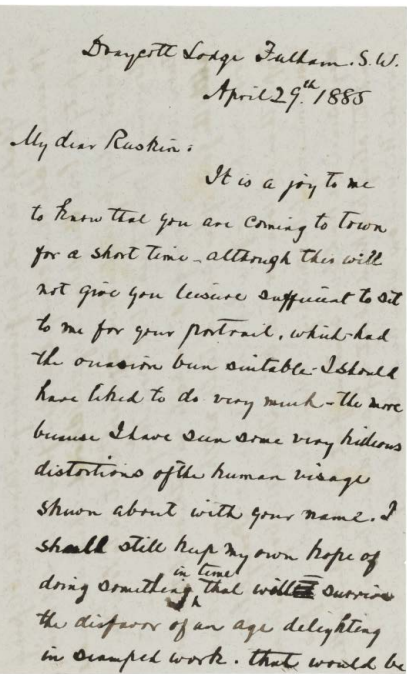 Draycott Lodge Fulham. S.W.
April 29.th 1885
My dear Ruskin:
It is a joy to me
to know that you are coming to town
for a short time - although this will
not give you leisure sufficient to sit
to me for your portrait, which had
the occasion been suitable - I should
have liked to do very much - the more
because I have seen some very hideous
distortions of the human visage
shewn about with your name. I
shall still keep my own hope of
in time
doing something that will survive
the disfavor of an age delighting
in scamped work. that would be